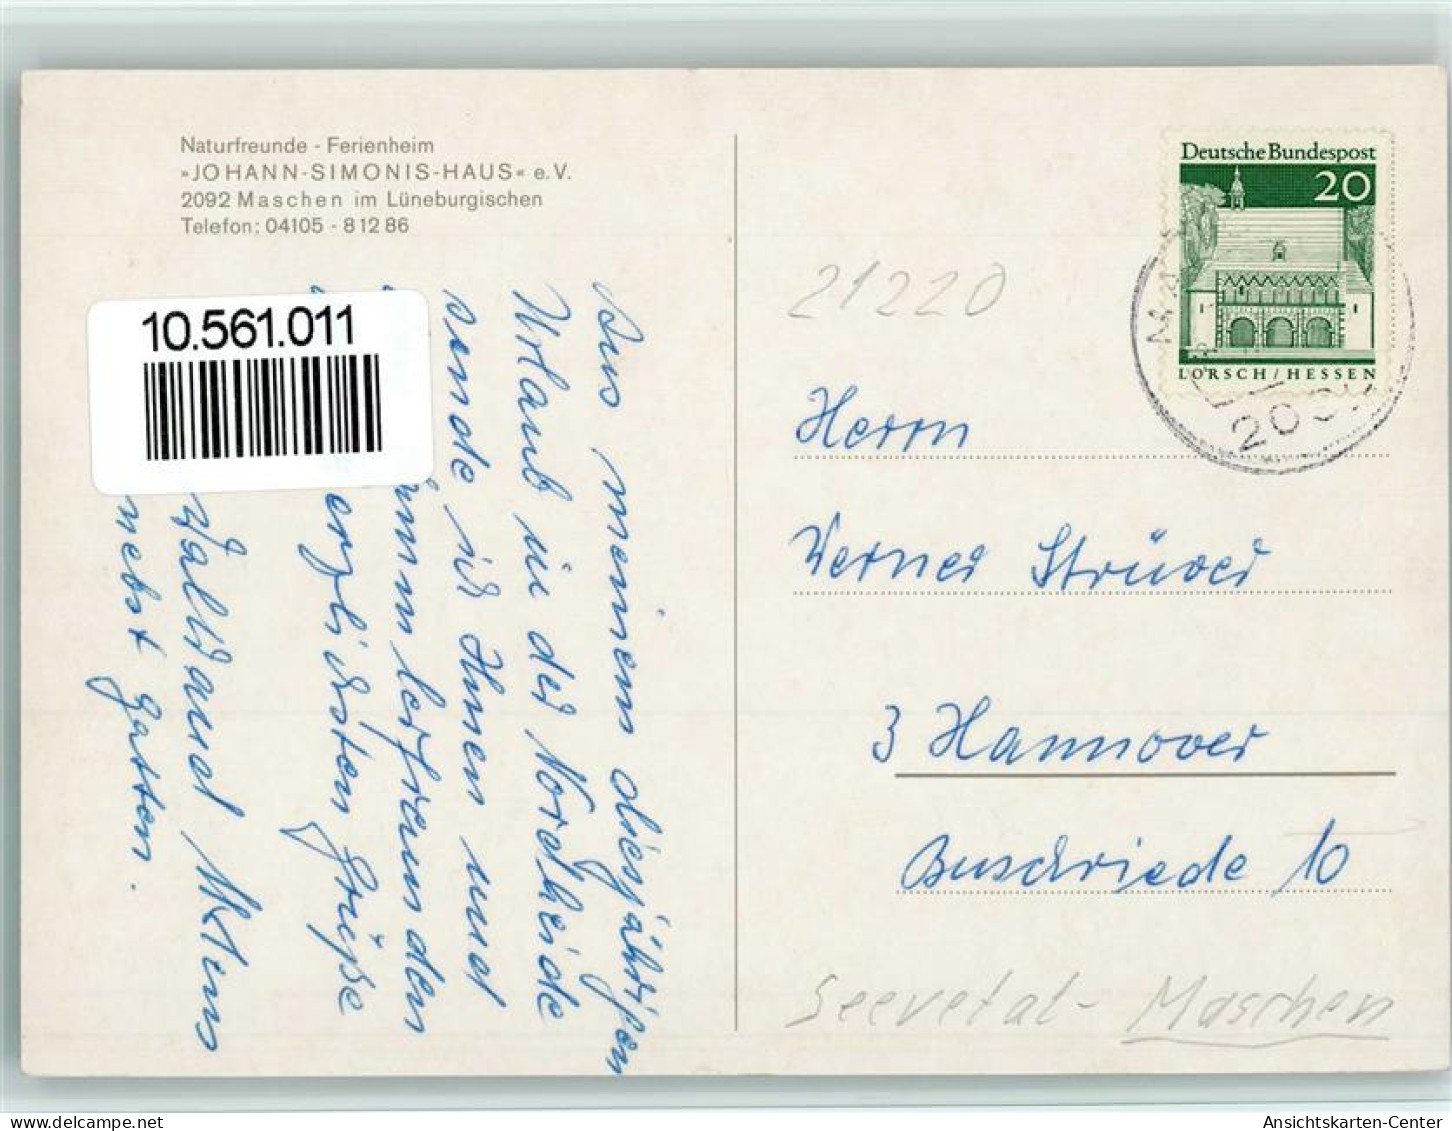 Naturfreunde - Ferienheim
»JOHANN-SIMONIS-HAUS« e.V.
2092 Maschen im Lüneburgischen
Telefon: 04105 - 8 12 86
10.561.011
Aus meinem diesjährigen
Urlaub in der Nordheide
sende ich Ihnen und
den
herzlichsten Grüße
nebst Gatten.
Deutsche Bundespost
20
LORSCH / HESSEN
21220
Herrn
Werner Strüver
3 Hannover
Buschriede 10
Seevetal - Maschen
Ansichtskarten-Center